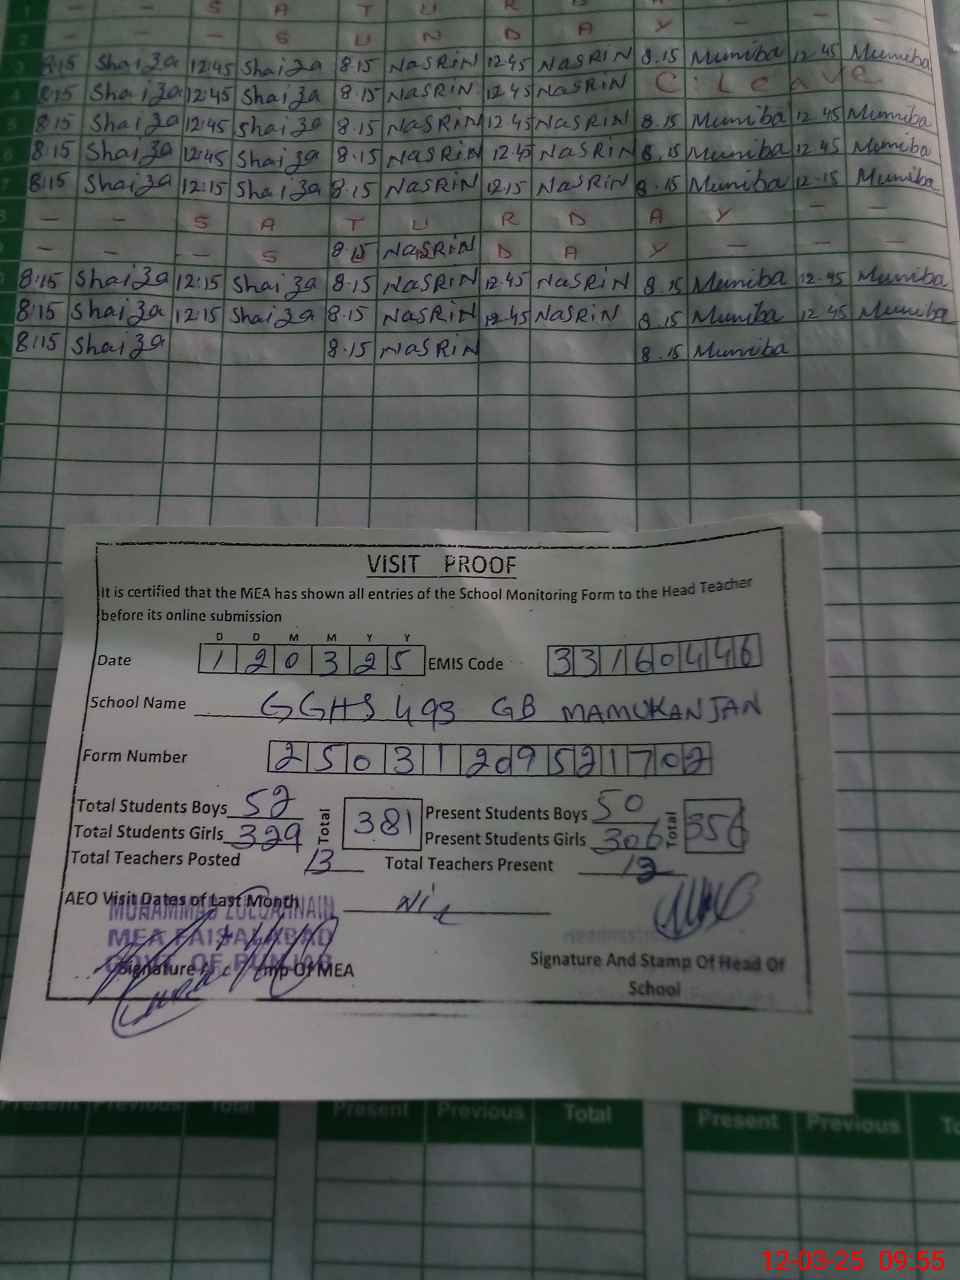 1 — — S A T U R
2 — — — S U N D A Y — —
3 8:15 Shaiza 12:45 Shaiza 8.15 NaSRiN 12.45 NaSRiN 8.15 Mumiba 12.45 Mumiba
4 8:15 Shaiza 12:45 Shaiza 8.15 NaSRiN 12.45 NaSRiN C. Leave
5 8:15 Shaiza 12:45 Shaiza 8.15 NaSRiN 12.45 NaSRiN 8.15 Mumiba 12.45 Mumiba
6 8:15 Shaiza 12:45 Shaiza 8.15 NaSRiN 12.45 NaSRiN 8.15 Mumiba 12.45 Mumiba
7 8:15 Shaiza 12:15 Shaiza 8.15 NaSRiN 12.15 NaSRiN 8.15 Mumiba 12.15 Mumiba
— — S A T U R D A Y — —
— — — S 8.15 NaSRiN D A Y — — —
8:15 Shaiza 12:15 Shaiza 8.15 NaSRiN 12.45 NaSRiN 8.15 Mumiba 12.45 Mumiba
8:15 Shaiza 12:15 Shaiza 8.15 NaSRiN 12.45 NaSRiN 8.15 Mumiba 12.45 Mumiba
8:15 Shaiza 8.15 NaSRiN 8.15 Mumiba
VISIT PROOF
It is certified that the MEA has shown all entries of the School Monitoring Form to the Head Teacher
before its online submission
D D M M Y Y
Date 1 2 0 3 2 5 EMIS Code 3 3 1 6 0 4 4 6
School Name GGHS 493 GB MAMUKANJAN
Form Number 2 5 0 3 1 2 0 9 5 2 1 7 0 2
Total Students Boys 52 Total 381 Present Students Boys 50 Total 356
Total Students Girls 329 Present Students Girls 306
Total Teachers Posted 13 Total Teachers Present 12
AEO Visit Dates of Last Month Nil
MUHAMMAD ZULQARNAIN
MEA FAISALABAD
GOVT. OF PUNJAB
Signature And Stamp Of MEA
Signature And Stamp Of Head Of
School
Present Previous Total Present Previous Total Present Previous
12-03-25 09:55